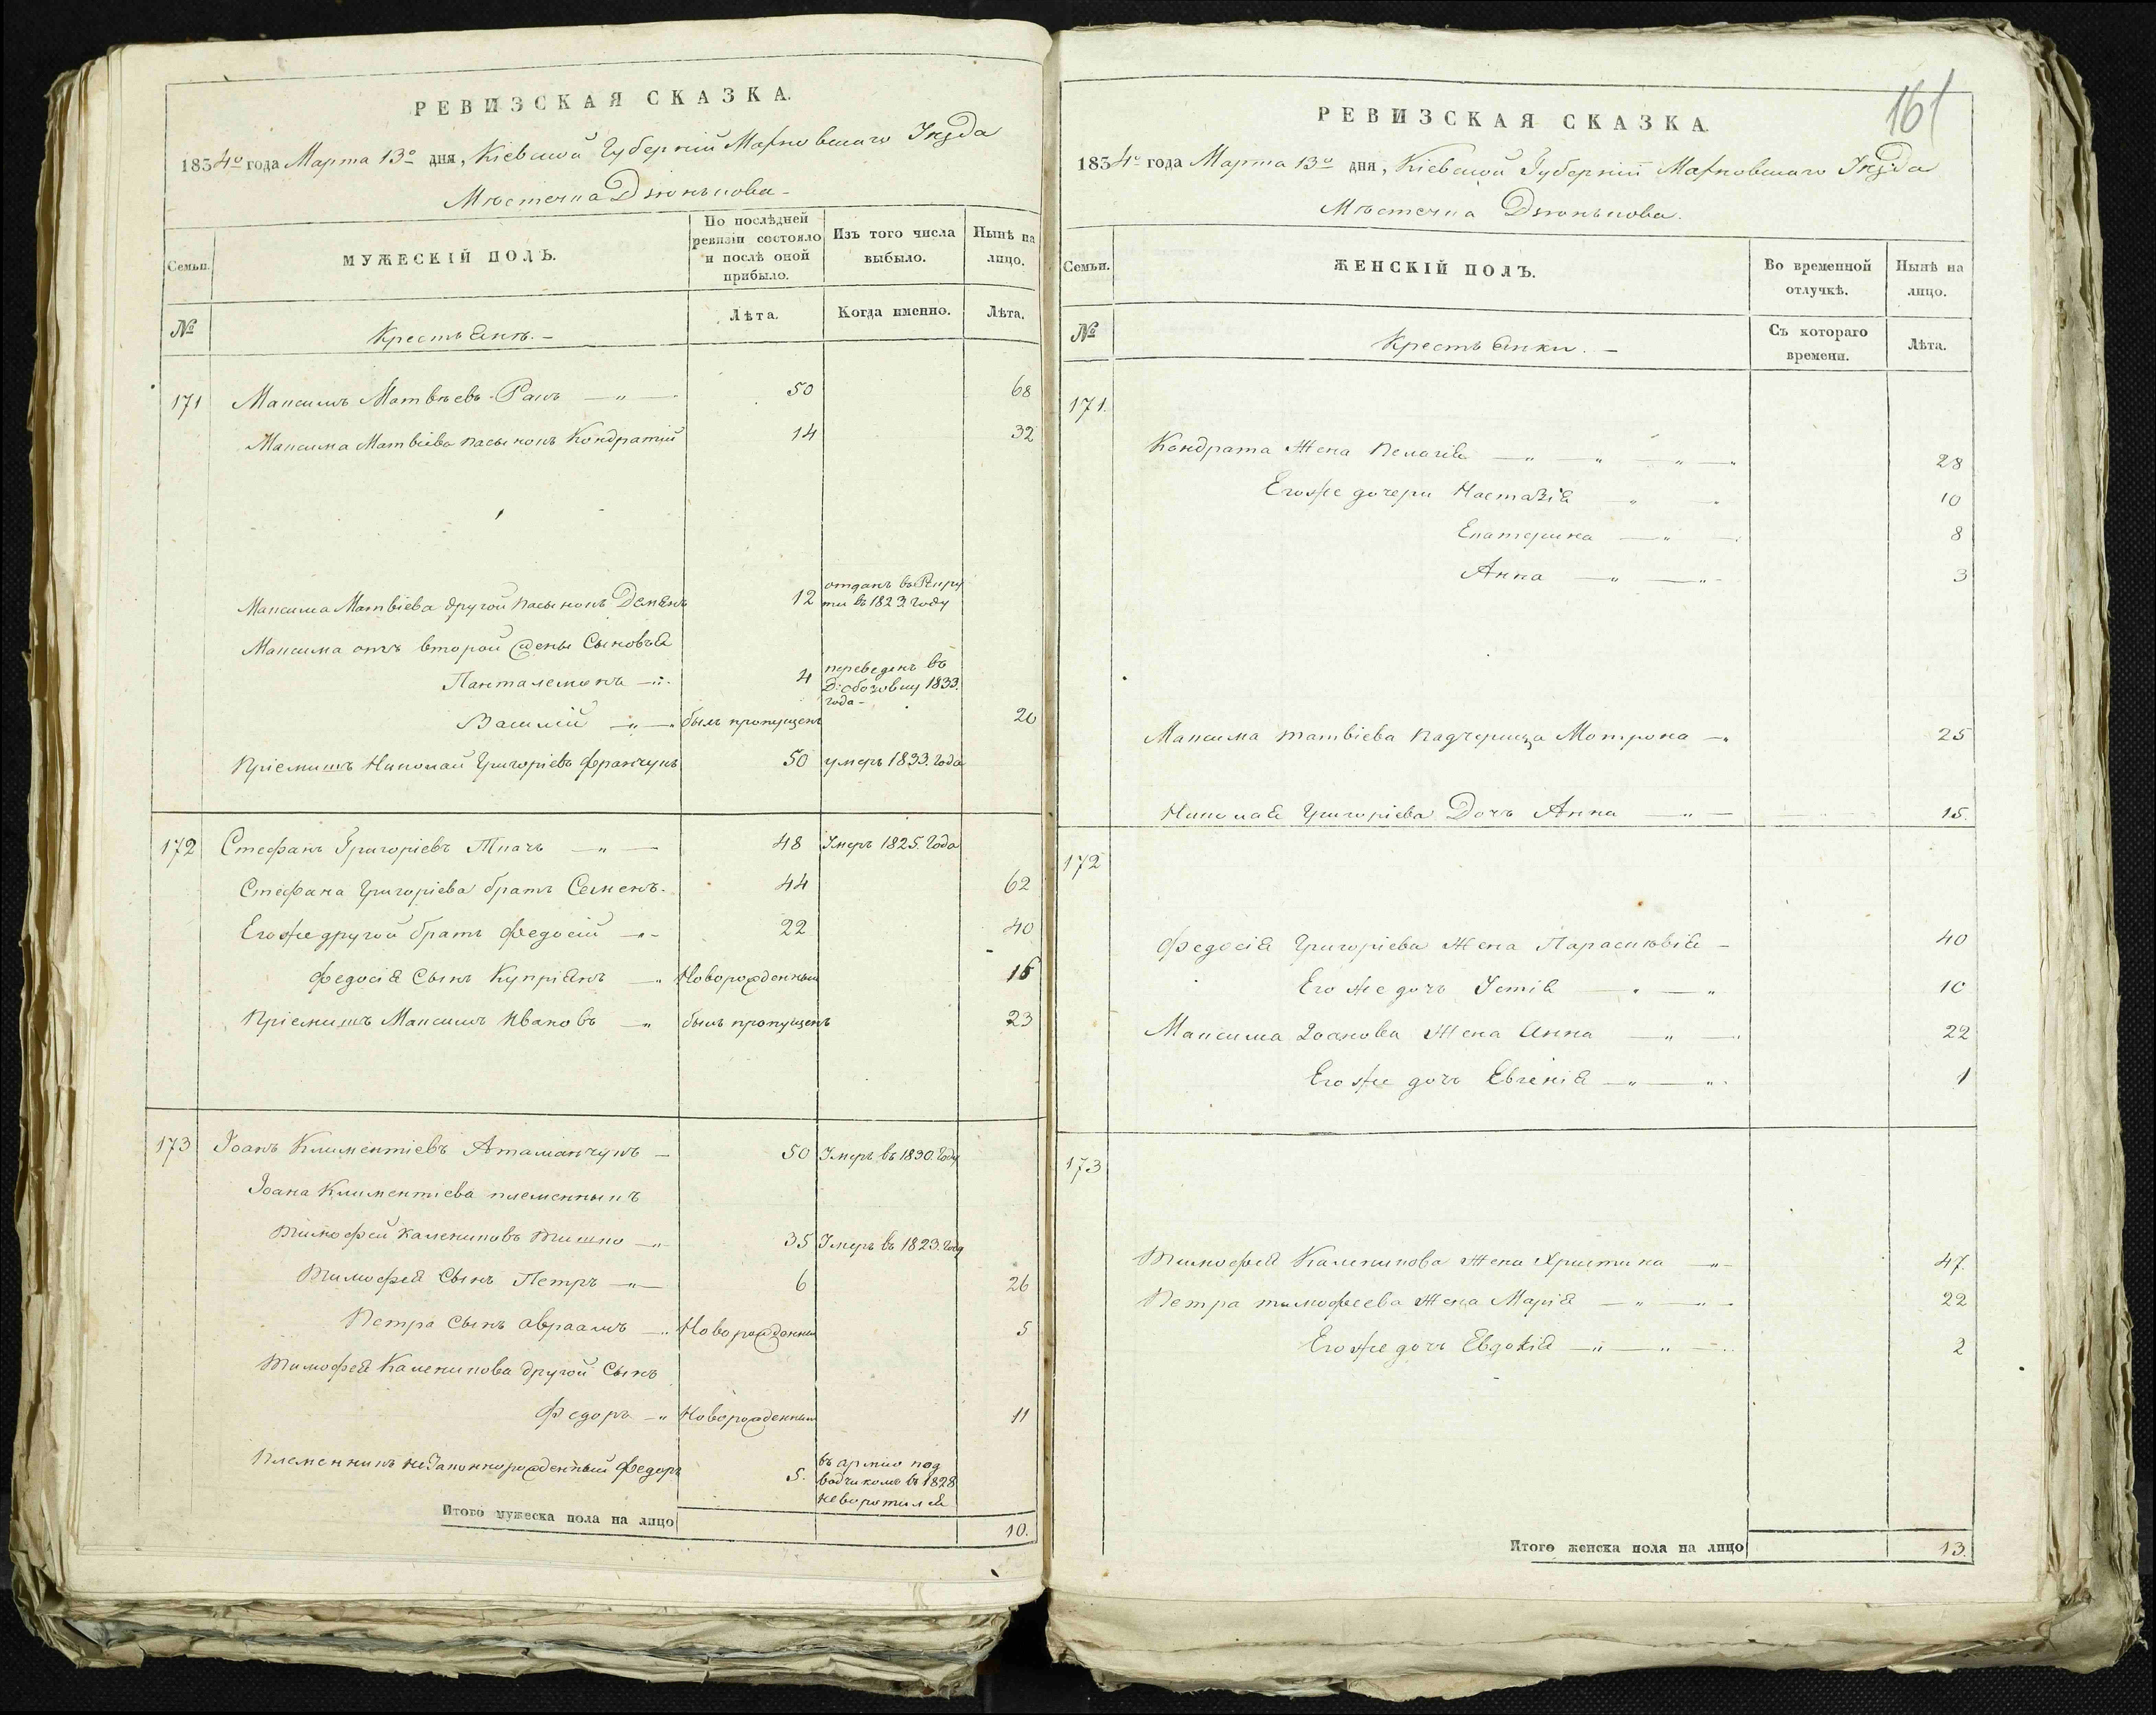 РЕВИЗСКАЯ СКАЗКА.
1834го года Марта 13го дня, Кіевской Губерніи Махновскаго Уѣзда
Мѣстечка Дзюнькова
Семьи.
МУЖЕСКІЙ ПОЛЪ.
По послѣдней ревизіи состояло и послѣ оной прибыло.
Изъ того числа выбыло.
Нынѣ на лицо.
№
Крестьянъ.
Лѣта.
Когда именно.
Лѣта.
171 Максимъ Матвѣевъ Ракъ 50 68
Максима Матвіева пасынокъ Кондратій 14 32
Максима Матвіева другой пасынокъ Демянъ 12 отданъ въ Рекру
ты въ 1823 году
Максима отъ второй жены Сыновья
Панталемонъ 4 переведенъ въ
Д: 1833.
года
Василій былъ пропущенъ 20
Пріемышъ Николай Григоріевъ Франчукъ 50 умеръ 1833. года
172 Стефанъ Григоріевъ Ткачъ 48 Умеръ 1825. Года
Стефана Григоріева братъ Семенъ. 44 62
Егоже другой братъ Федосій 22 40
Федосія Сынъ Купріянъ Новорожденный 16
Пріемышъ Максимъ Ивановъ былъ пропущенъ 23
173 Іоанъ Климентіевъ Атаманчукъ 50 Умеръ въ 1830. Году
Іоана Климентіева племенныкъ
Тимофей Калениковъ Тишко 35 Умеръ въ 1823. Году
Тимофея Сынъ Петръ 6 26
Петра Сынъ Авраамъ Новорожденный 5
Тимофея Каленикова другой Сынъ
Федоръ Новорожденный 11
Племенникъ незаконнорожденный Федоръ 5. въ армію под
водчикомъ въ 1828
неворотился
Итого мужеска пола на лицо 10.
161
РЕВИЗСКАЯ СКАЗКА.
1834го года Марта 13го дня, Кіевской Губерніи Махновскаго Уѣзда
Мѣстечка Дзюнькова.
Семьи.
ЖЕНСКІЙ ПОЛЪ.
Во временной отлучкѣ.
Нынѣ на лицо.
№
Крестьянки.
Съ котораго времени.
Лѣта.
171.
Кондрата Жена Пелагія 28
Егоже дочери Настазія 10
Екатерина 8
Анна 3
Максима матвіева падчерица Мотрона 25
Николая Григоріева Дочь Анна 15.
172
Федосія Григоріева Жена Параскювія 40
Его же дочь Устія 10
Максима Іоанова Жена Анна 22
Его же дочь Евгенія 1
173
Тимофея Каленикова Жена Христина 47.
Петра тымофеева Жена Марія 22
Егоже дочь Евдокія 2
Итого женска пола на лицо 13.